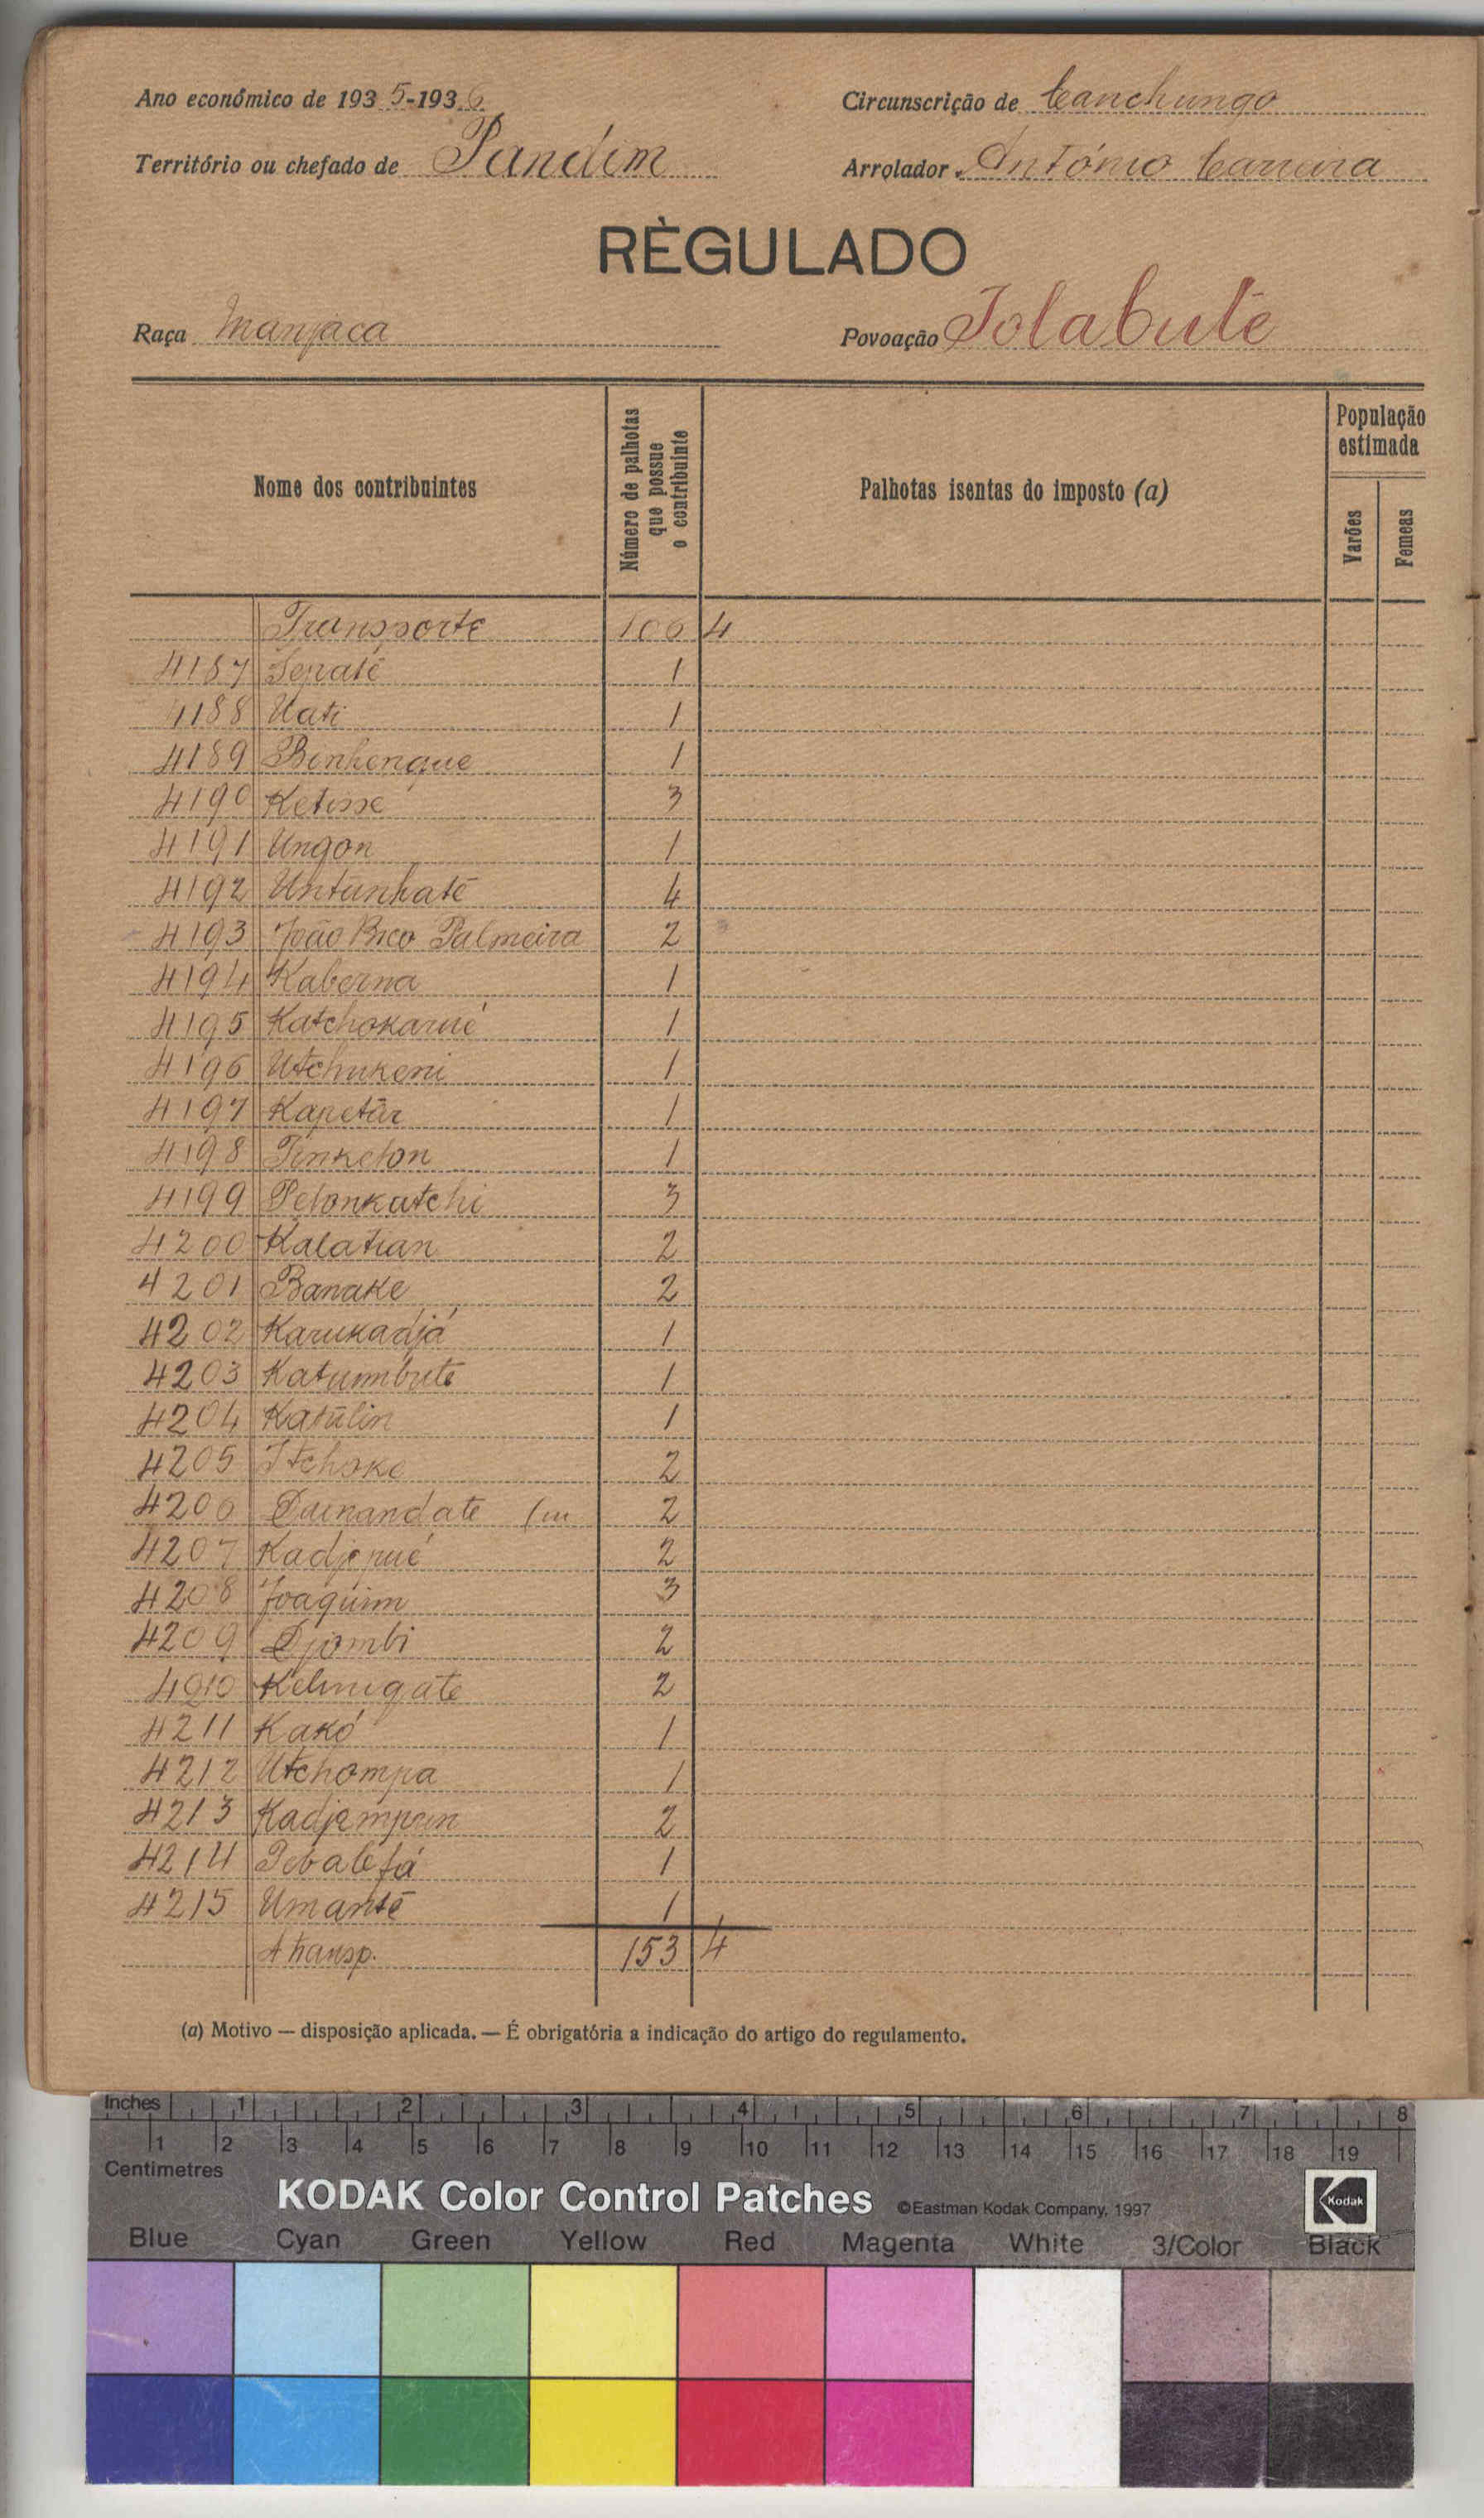 Ano económico de 1935-1936
Circunscrição de Canchungo
Território ou chefado de Pandim
Arrolador António Carreira
RÈGULADO
Raça Manjaca
Povoação Jolabutè
Nome dos contribuintes
Número de palhotas que possue o contribuinte
Palhotas isentas do imposto (a)
População estimada
Varões
Femeas
Transporte 106 4
4187 1
4188 Uati 1
4189 Benhenque 1
4190 Ketisse 3
4191 Ungon 1
4192 Untunhatè 4
4193 João Bico Palmeira 2
4194 Kaberna 1
4195 Katchokarué 1
4196 Utchukeni 1
4197 Kapetár 1
4198 Tinkelon 1
4199 Pelonkatchi 3
4200 Kalatian 2
4201 Banake 2
4202 Karukadjá 1
4203 Katumbute 1
4204 Katúlin 1
4205 Itchoke 2
4206 2
4207 Kadjepué 2
4208 Joaquim 3
4209 Djombi 2
4210 2
4211 Kakó 1
4212 Utchompa 1
4213 Kadjempan 2
4214 1
4215 Umantè 1
A transp. 153 4
(a) Motivo — disposição aplicada. — É obrigatória a indicação do artigo do regulamento.
Inches 1 2 3 4 5 6 7 8
1 2 3 4 5 6 7 8 9 10 11 12 13 14 15 16 17 18 19
Centimetres
KODAK Color Control Patches ©Eastman Kodak Company, 1997 Kodak
Blue Cyan Green Yellow Red Magenta White 3/Color Black